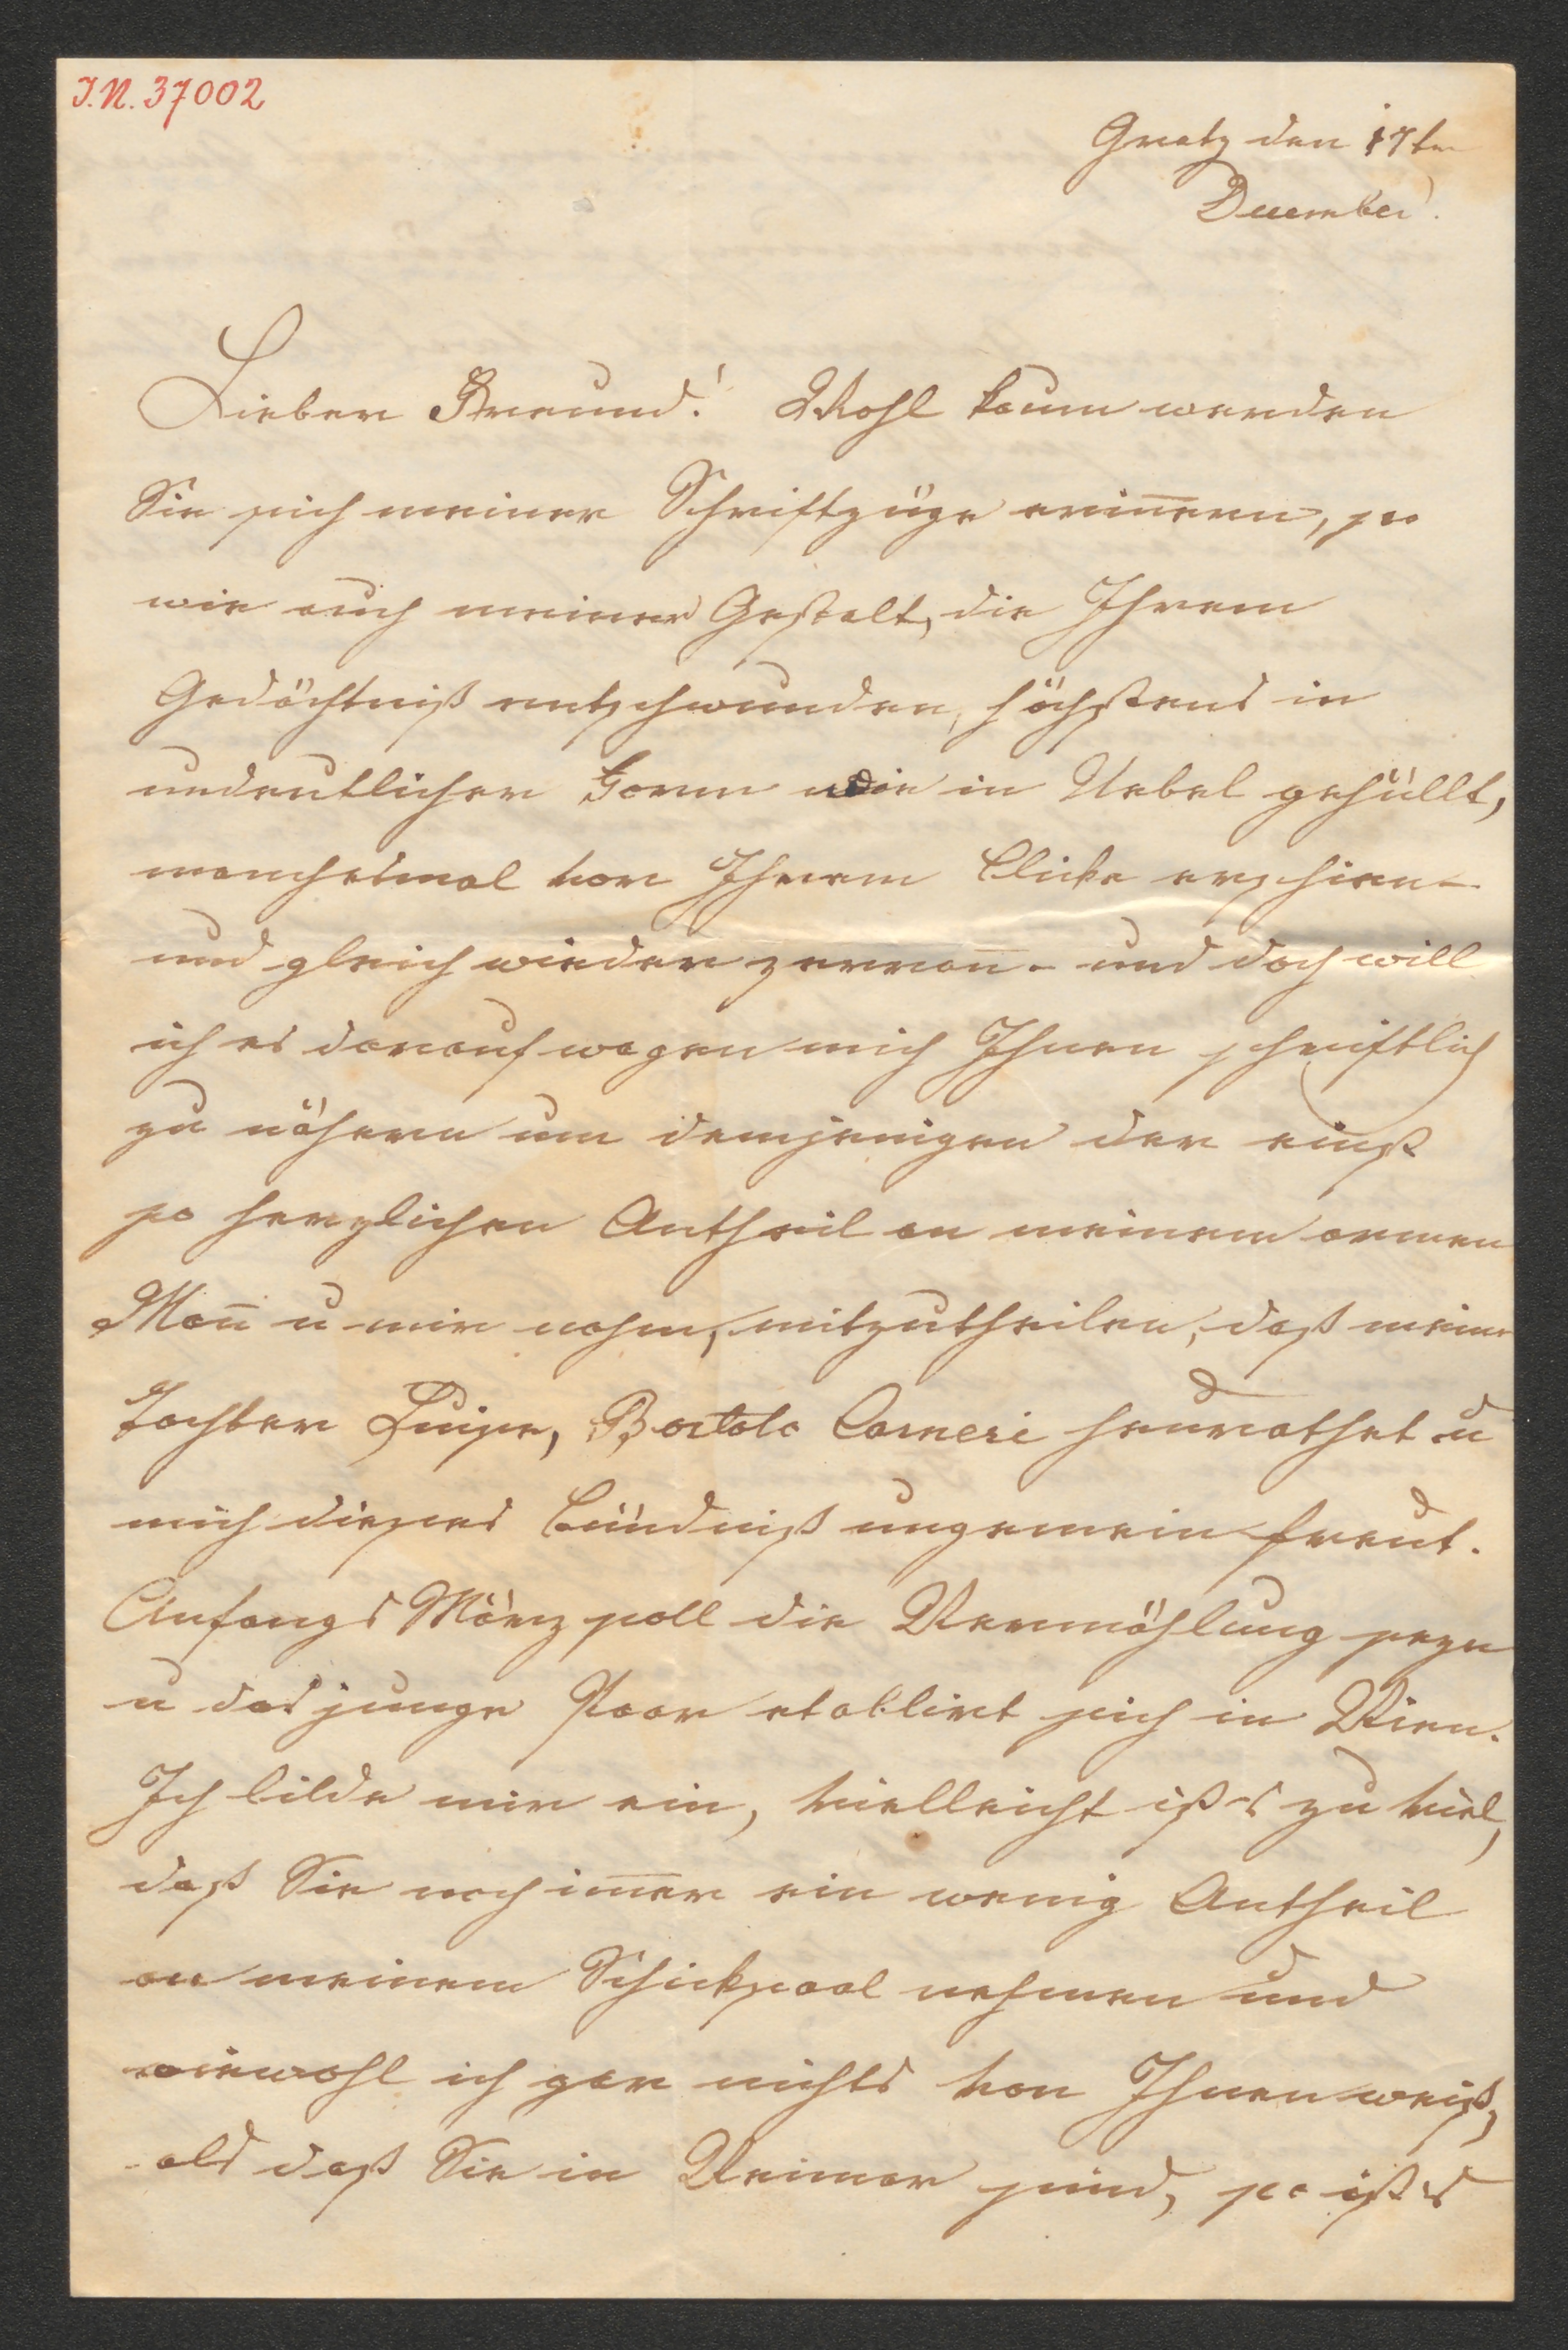 I.N. 37002
Gratz den 17ten
December.
Lieber Freund! Wohl kaum werden
Sie sich meiner Schriftzüge erin̅ern, so
wie auch meiner Gestalt, die Ihrem
Gedächtniß entschwunden, höchstens in
undeutlicher Form wie in Nebel gehüllt,
manchesmal vor Ihrem Blicke erschien –
und gleich wieder zerran̅ – und doch will
ich es darauf wagen mich Ihnen schriftlich
zu nähern um demjenigen der einst
so herzlichen Antheil an meinem armen
Man̅ u mir nahm, mitzutheilen, daß meine
Tochter Luise, Bortolo Carneri heurathet u
mich dieses Bündniß ungemein freut.
Anfangs März soll die Vermählung seyn
u das junge Paar etablirt sich in Wien.
Ich bilde mir ein, vielleicht ists zu viel,
daß Sie noch im̅er ein wenig Antheil
an meinem Schicksaal nehmen und
wiewohl ich gar nichts von Ihnen weiß,
als daß Sie in Weimar sind, so ists